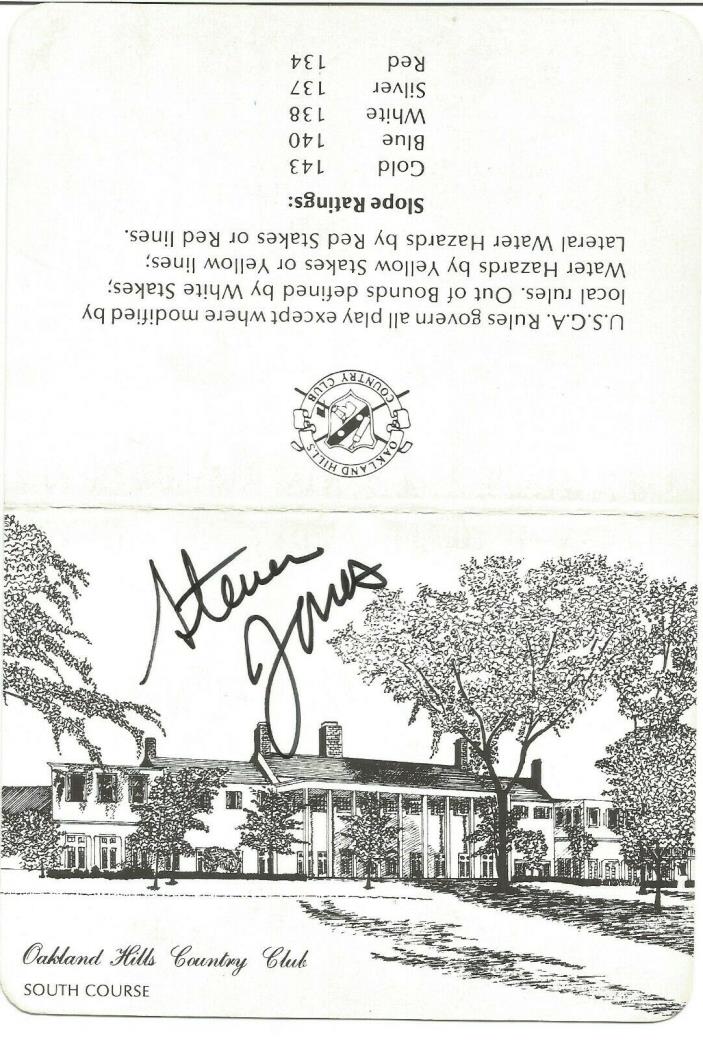 OAKLAND HILLS
COUNTRY CLUB
U.S.G.A. Rules govern all play except where modified by
local rules. Out of Bounds defined by White Stakes;
Water Hazards by Yellow Stakes or Yellow lines;
Lateral Water Hazards by Red Stakes or Red lines.
Slope Ratings:
Gold 143
Blue 140
White 138
Silver 137
Red 134
Steven
Jones
Oakland Hills Country Club
SOUTH COURSE